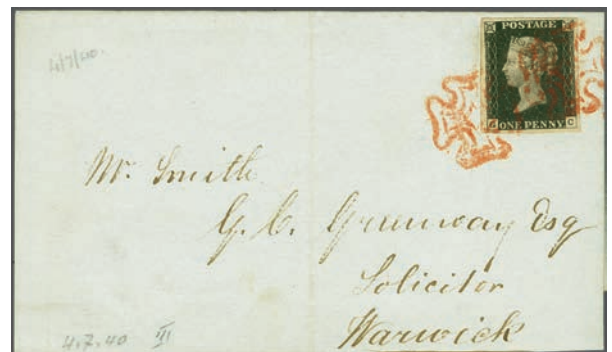 4/7/40.
POSTAGE
ONE PENNY
C
Mr. Smith
G. C. Greenway Esq
Solicitor
Warwick
4.7.40 III